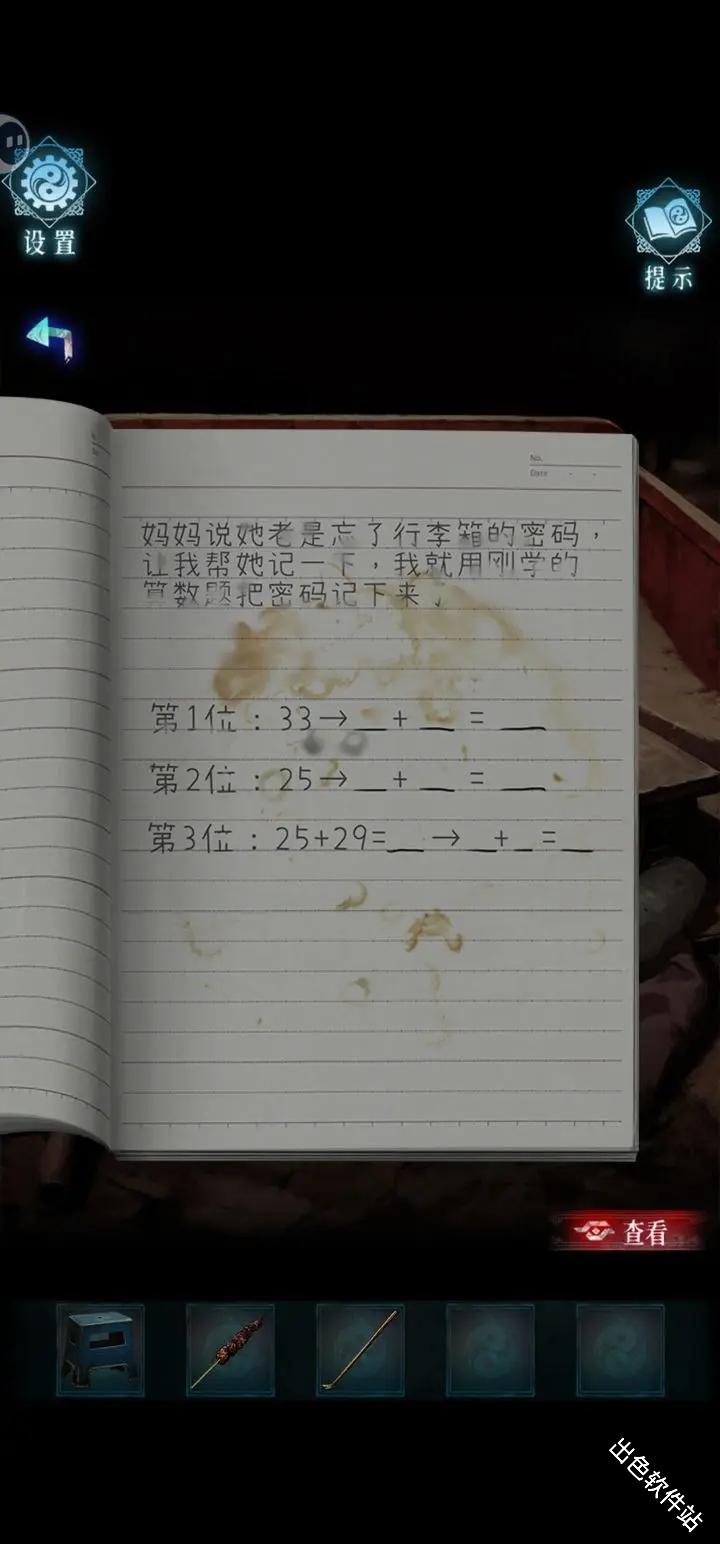 设置
提示
No.
Date
妈妈说她老是忘了行李箱的密码，
让我帮她记一下，我就用刚学的
算数题把密码记下来了
第1位：33→__+__=__
第2位：25→__+__=__
第3位：25+29=__→__+__=__
查看
出色软件站